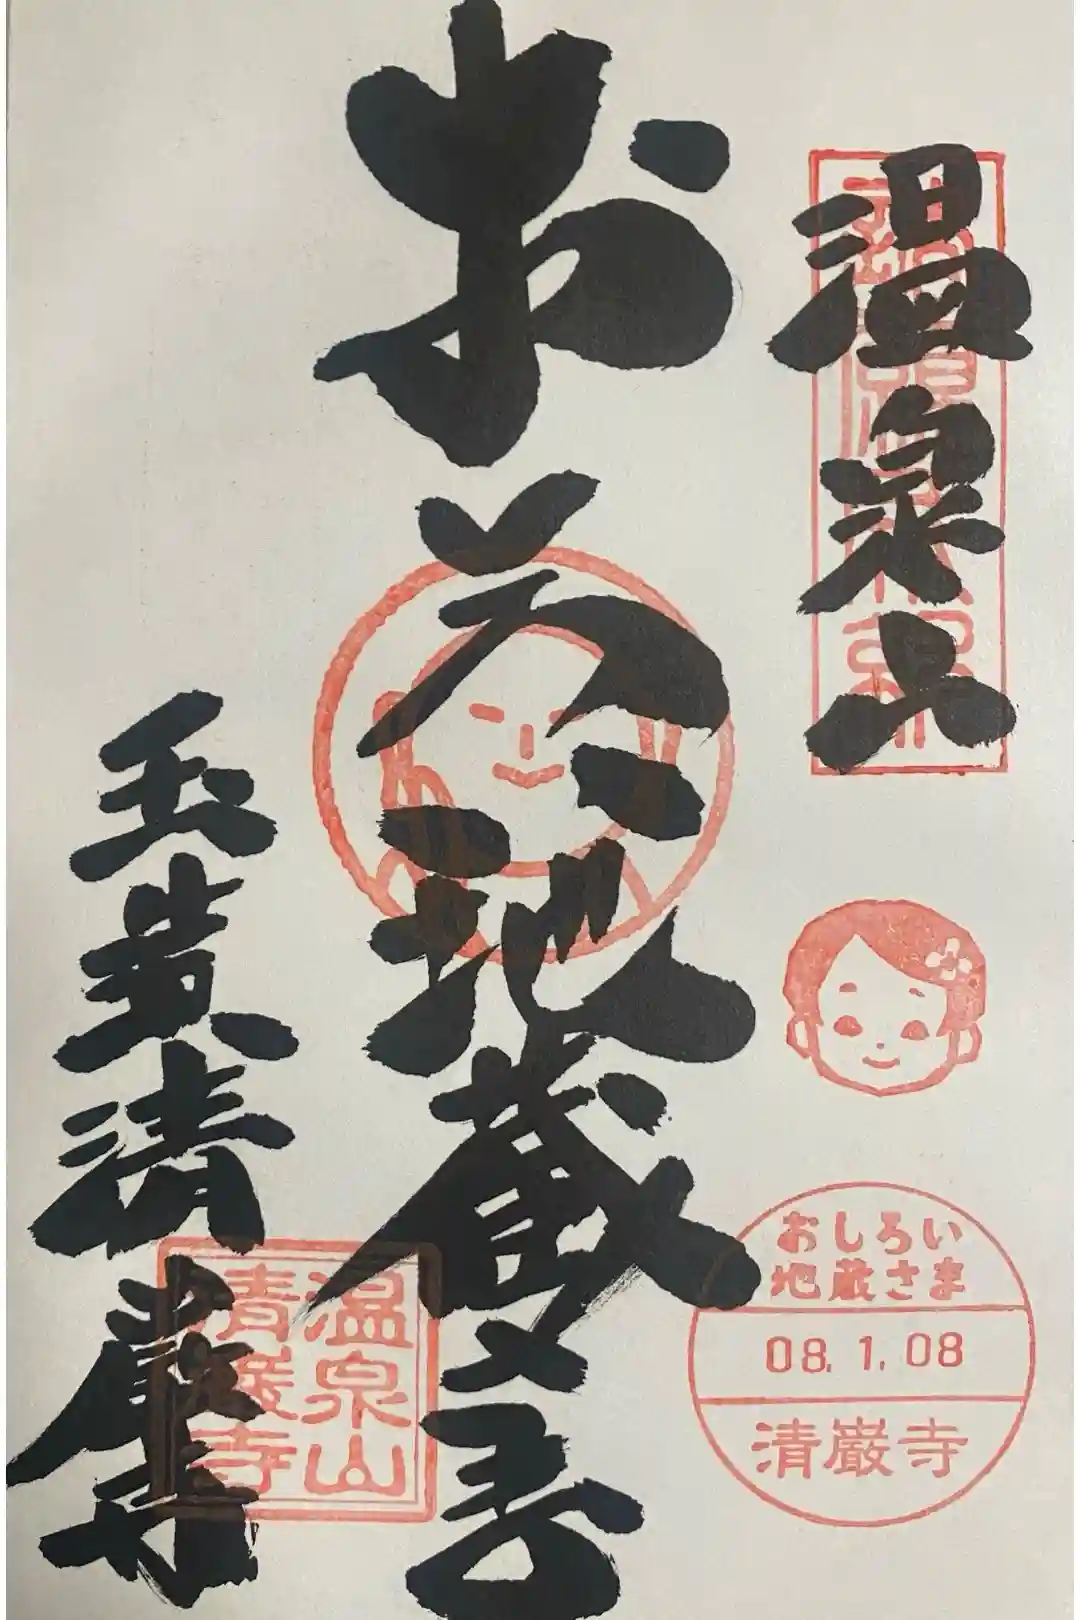 温泉山
お
地蔵尊
玉造清巌寺
温泉山
清巌寺
おしろい
地蔵さま
08.1.08
清巌寺